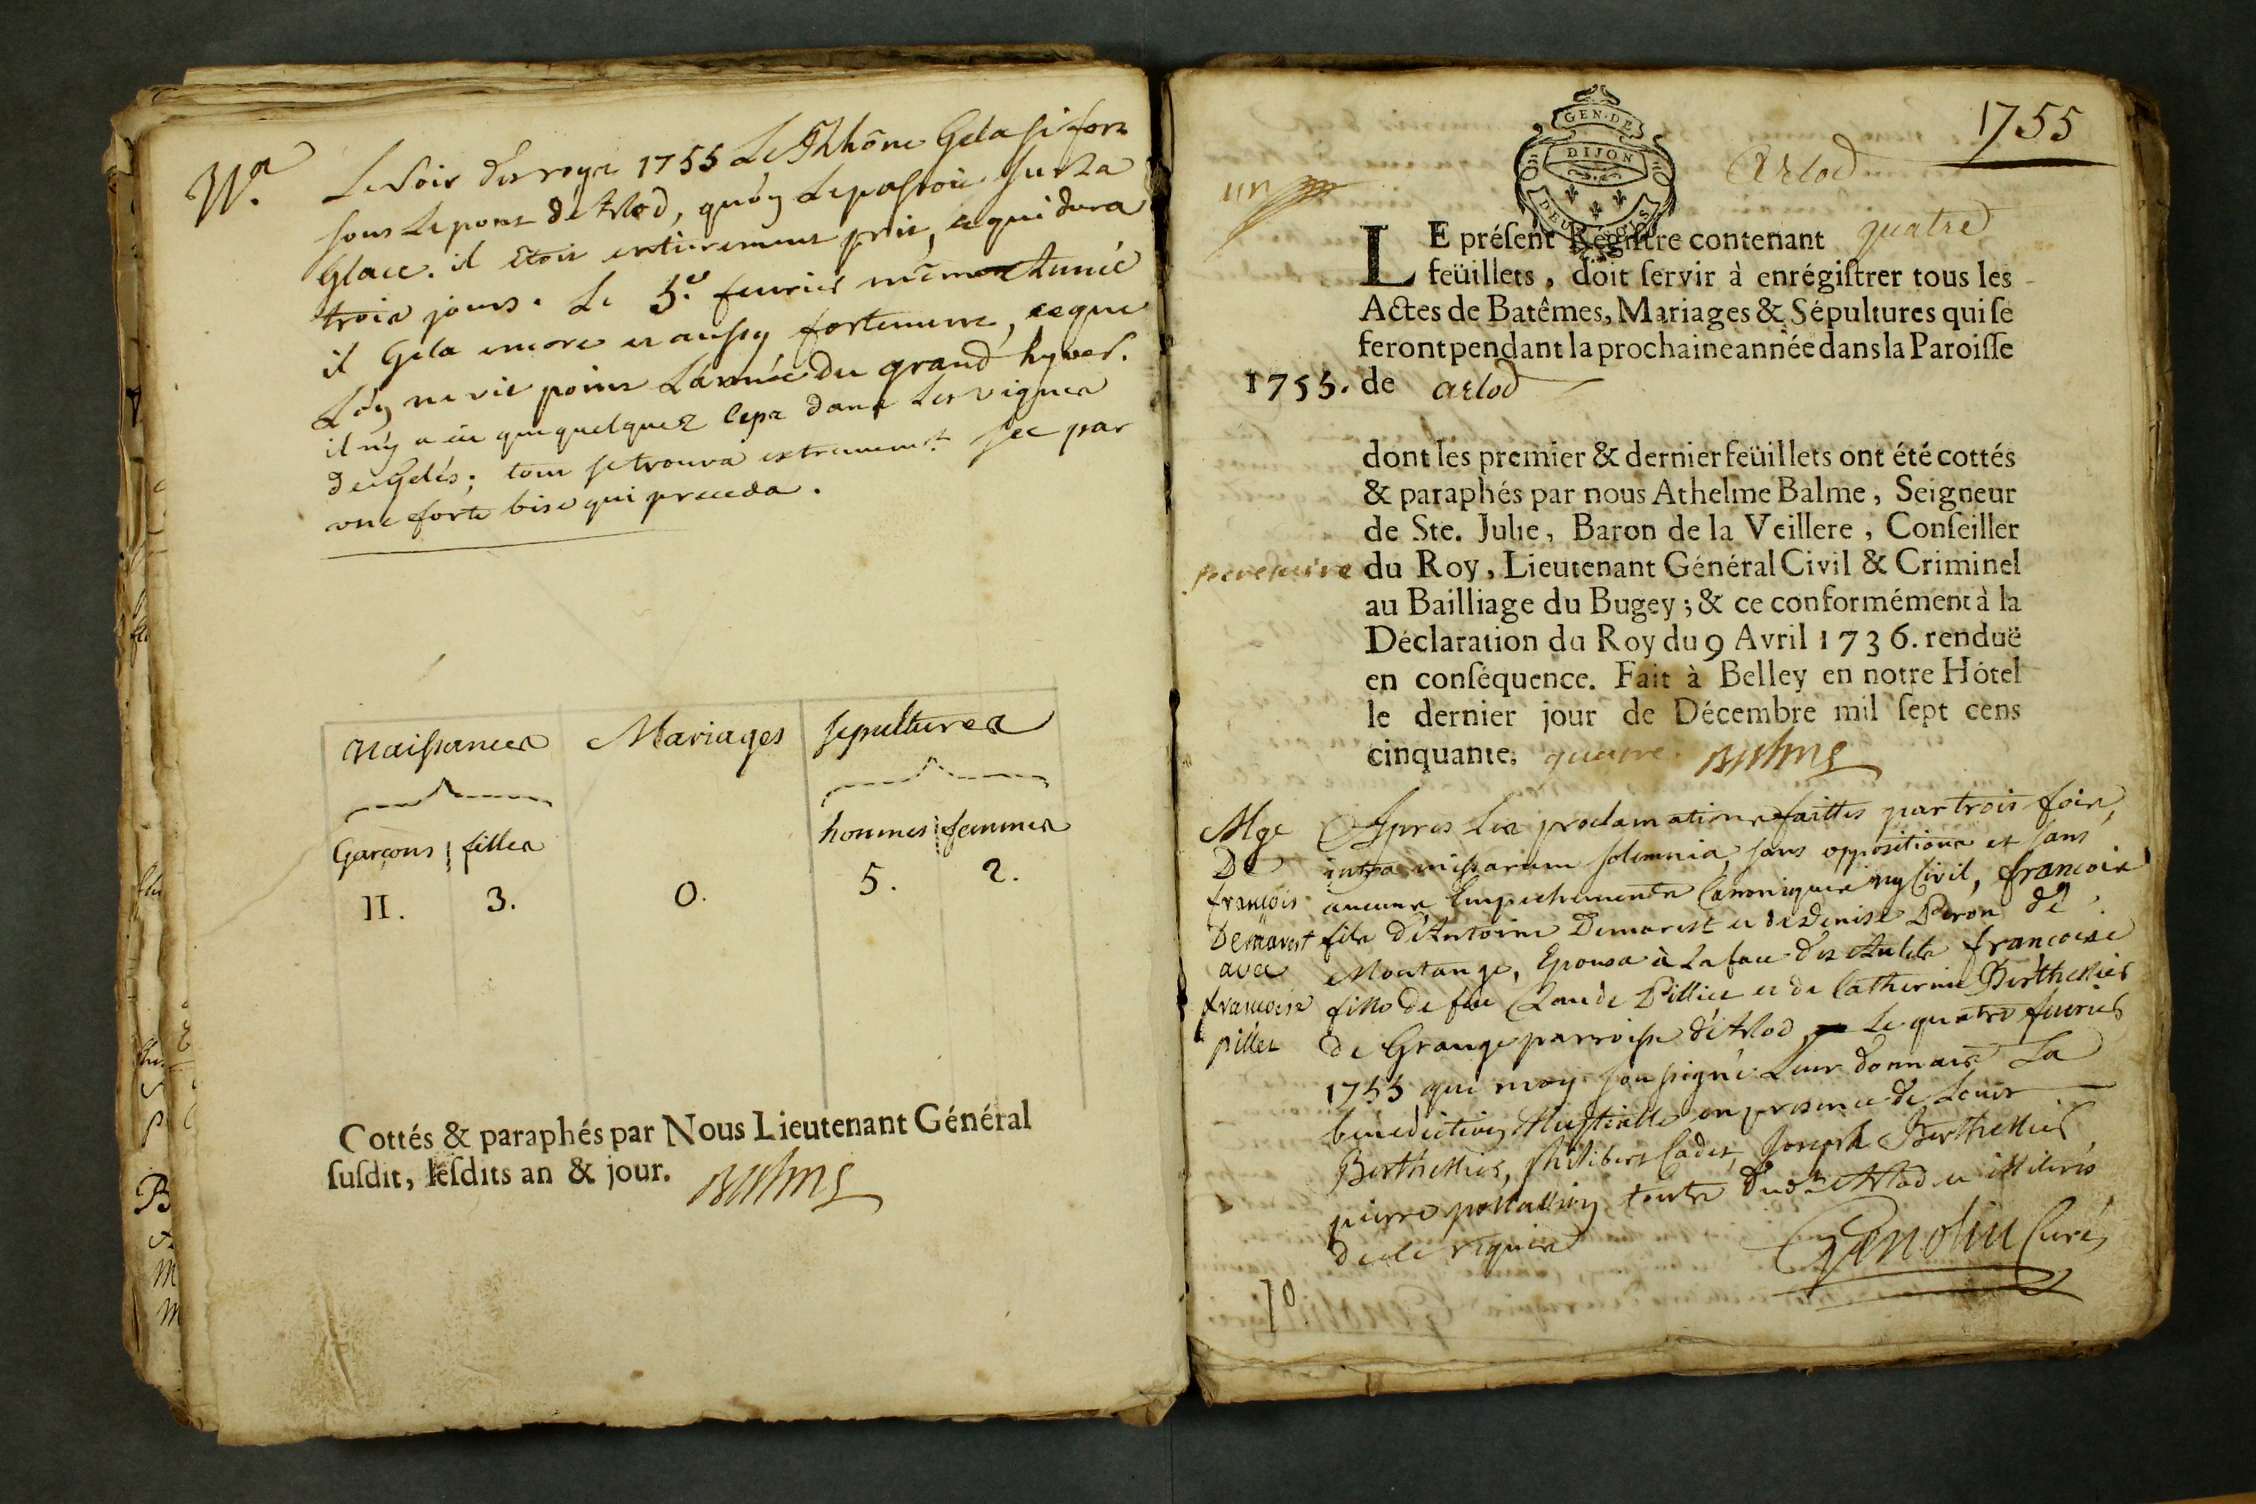 Na.
Le soir des roys 1755 Le Rhône Gela si fort
sous Le pont de Arlod, qu'on Le passoit sur La
Glace. il étoit entierement pris, ce qui dura
trois jours. Le 5.e feurier même Année
il Gela encore et aussy fortement, ce que
L'on ne vit point L'année du grand hyver.
il n'y a eu que quelques ceps dans Les vignes
de Gelés; tout se trouva extremem.t sec par
une forte bise qui preceda.
Naissances Mariages sepultures
Garçons filles hommes femmes
11. 3. 0. 5. 2.
Cottés & paraphés par Nous Lieutenant Général
suſdit, leſdits an & jour. Balme
1755
GEN. DE
DIJON
DEUX SOLS
Arlod
un
LE préſent Regiſtre contenant quatre
feüillets, doit ſervir à enrégiſtrer tous les
Actes de Batêmes, Mariages & Sépultures qui ſe
feront pendant la prochaine année dans la Paroiſſe
1755. de Arlod
dont les premier & dernier feüillets ont été cottés
& paraphés par nous Athelme Balme, Seigneur
de Ste. Julie, Baron de la Veillere, Conſeiller
secretaire du Roy, Lieutenant Général Civil & Criminel
au Bailliage du Bugey; & ce conformément à la
Déclaration du Roy du 9 Avril 1736. renduë
en conſéquence. Fait à Belley en notre Hôtel
le dernier jour de Décembre mil ſept cens
cinquante, quatre. Balme
Mge
De
françois
Demarest
avec
francoise
pillet
Apres Les proclamations faittes par trois fois,
intra missarum solemnia, sans oppositions et sans
aucuns Empechements Canoniques ny Civil, francois
fils d'Antoine Demarest et de Denise Peron de
Montange, Epousa à La face des Autels francoise
fille de feu Claude Pillet et de Catherine Berthellier
de Grange parroisse d'Arlod, Le quatre feurier
1755 que moy soussigné Leur donnais La
benediction Nuptialle en presence de Louis
Berthellier, philibert Cadet, Joseph Berthellier
pierre touts dud. Arlod et illiterés
de ce requis
Genolin Curé,
1o